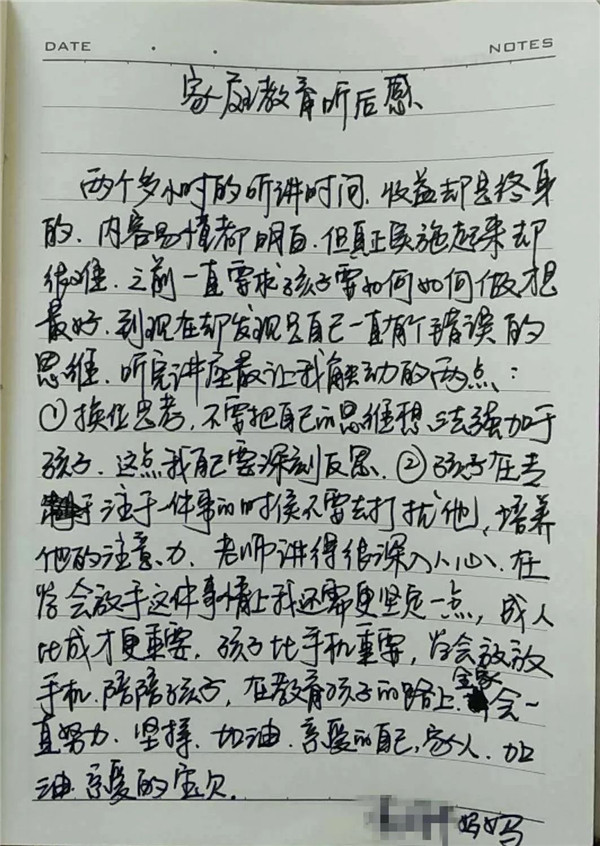 DATE · · NOTES
家庭教育听后感
两个多小时的听讲时间、收益却是终身
的、内容易懂都明白、但真正实施起来却
很难、之前一直要求孩子要如何如何做才想
最好、到现在却发现是自己一直有个错误的
思维、听完讲座最让我触动的两点：
①换位思考，不要把自己的思维想法强加于
孩子、这点我自己要深刻反思、②孩子在专
注于一件事的时候不要去打扰他、培养
他的注意力、老师讲得很深入人心、在
学会放手这件事情上我还需更坚定一点，成人
比成才更重要、孩子比手机重要，学会放放
手机、陪陪孩子，在教育孩子的路上、全家会一
直努力、坚持、加油、亲爱的自己，家人、加
油、亲爱的宝贝。
妈妈